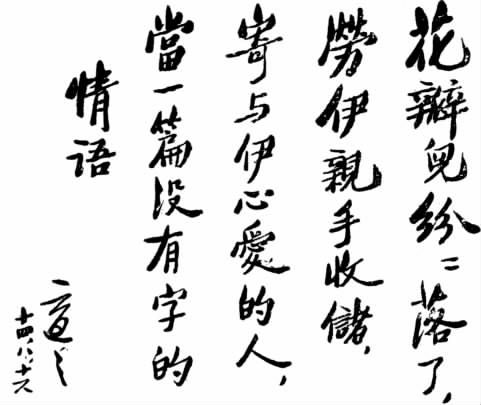 花瓣兒紛〻落了，
勞伊親手收儲，
寄与伊心愛的人，
當一篇没有字的
情语
適之
十四、八、十六